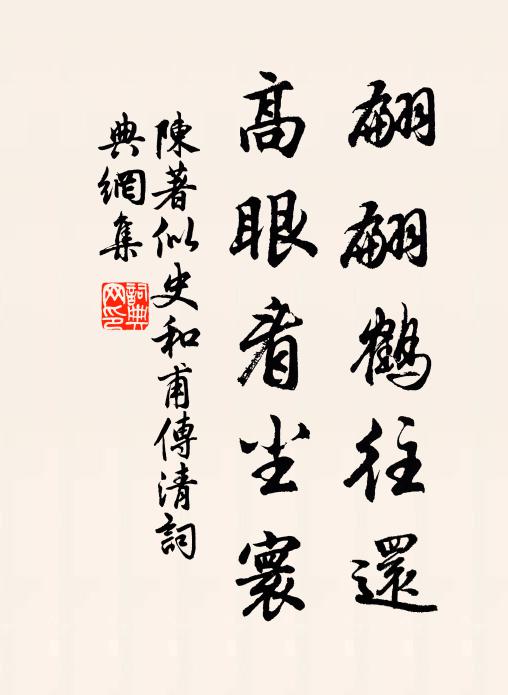 翩翩鶴往還
高眼看尘寰
陳著似史和甫傳清詞
典網集
詞典网印